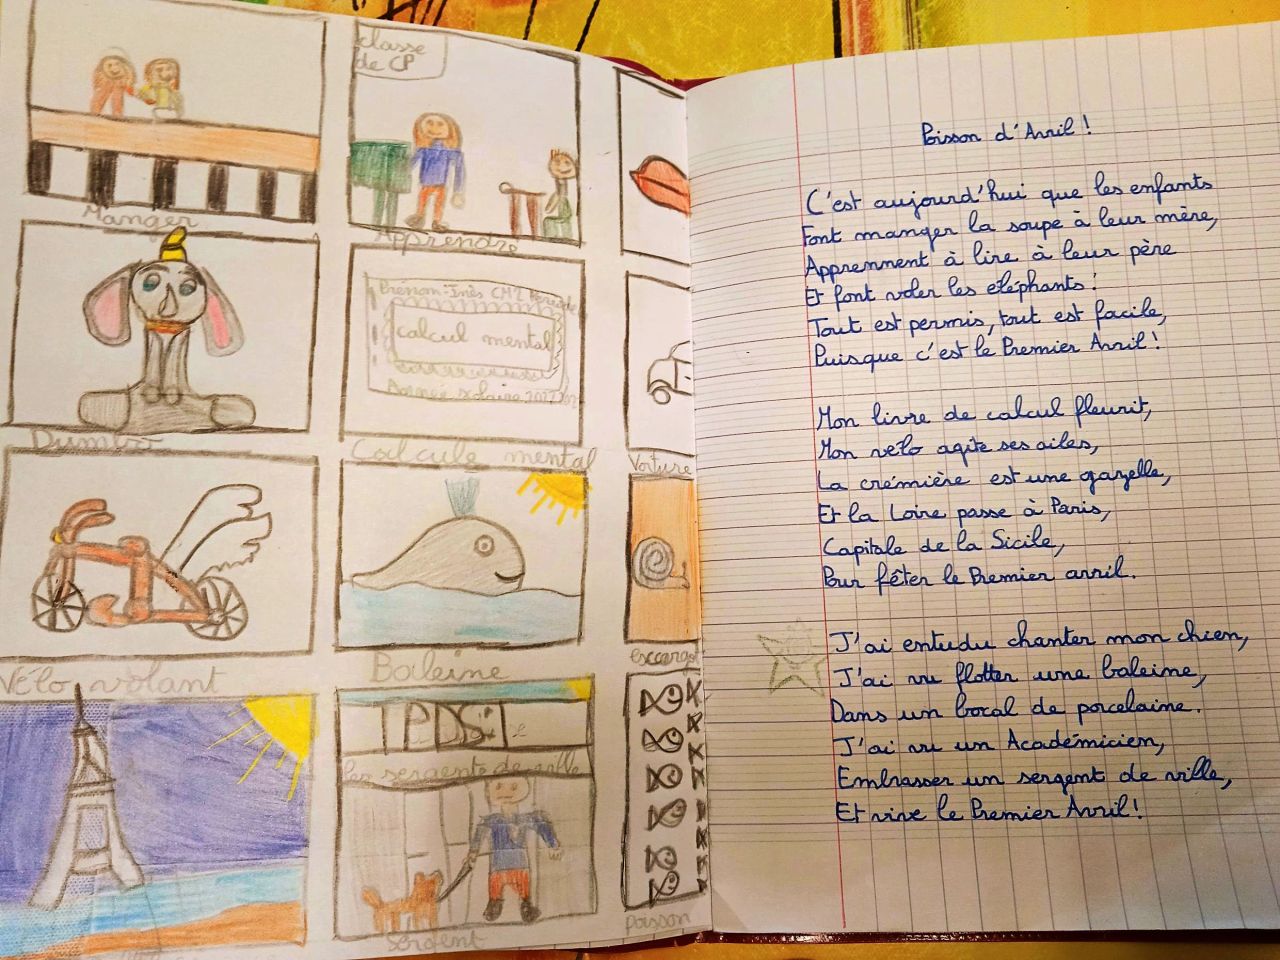 classe
de CP
Manger
Apprendre
Prénom: Inès CM2
calcul mental
Année scolaire
Dumbo
Calcule mental
Voiture
Vélo volant
Baleine
escargot
les sergents de ville
Sergent
Poisson
Poisson d'Avril !
C'est aujourd'hui que les enfants
Font manger la soupe à leur mère,
Apprennent à lire à leur père
Et font voler les éléphants !
Tout est permis, tout est facile,
Puisque c'est le Premier Avril !
Mon livre de calcul fleurit,
Mon vélo agite ses ailes,
La crémière est une gazelle,
Et la Loire passe à Paris,
Capitale de la Sicile,
Pour fêter le Premier avril.
J'ai entudu chanter mon chien,
J'ai vu flotter une baleine,
Dans un bocal de porcelaine.
J'ai vu un Académicien,
Embrasser un sergent de ville,
Et vive le Premier Avril !